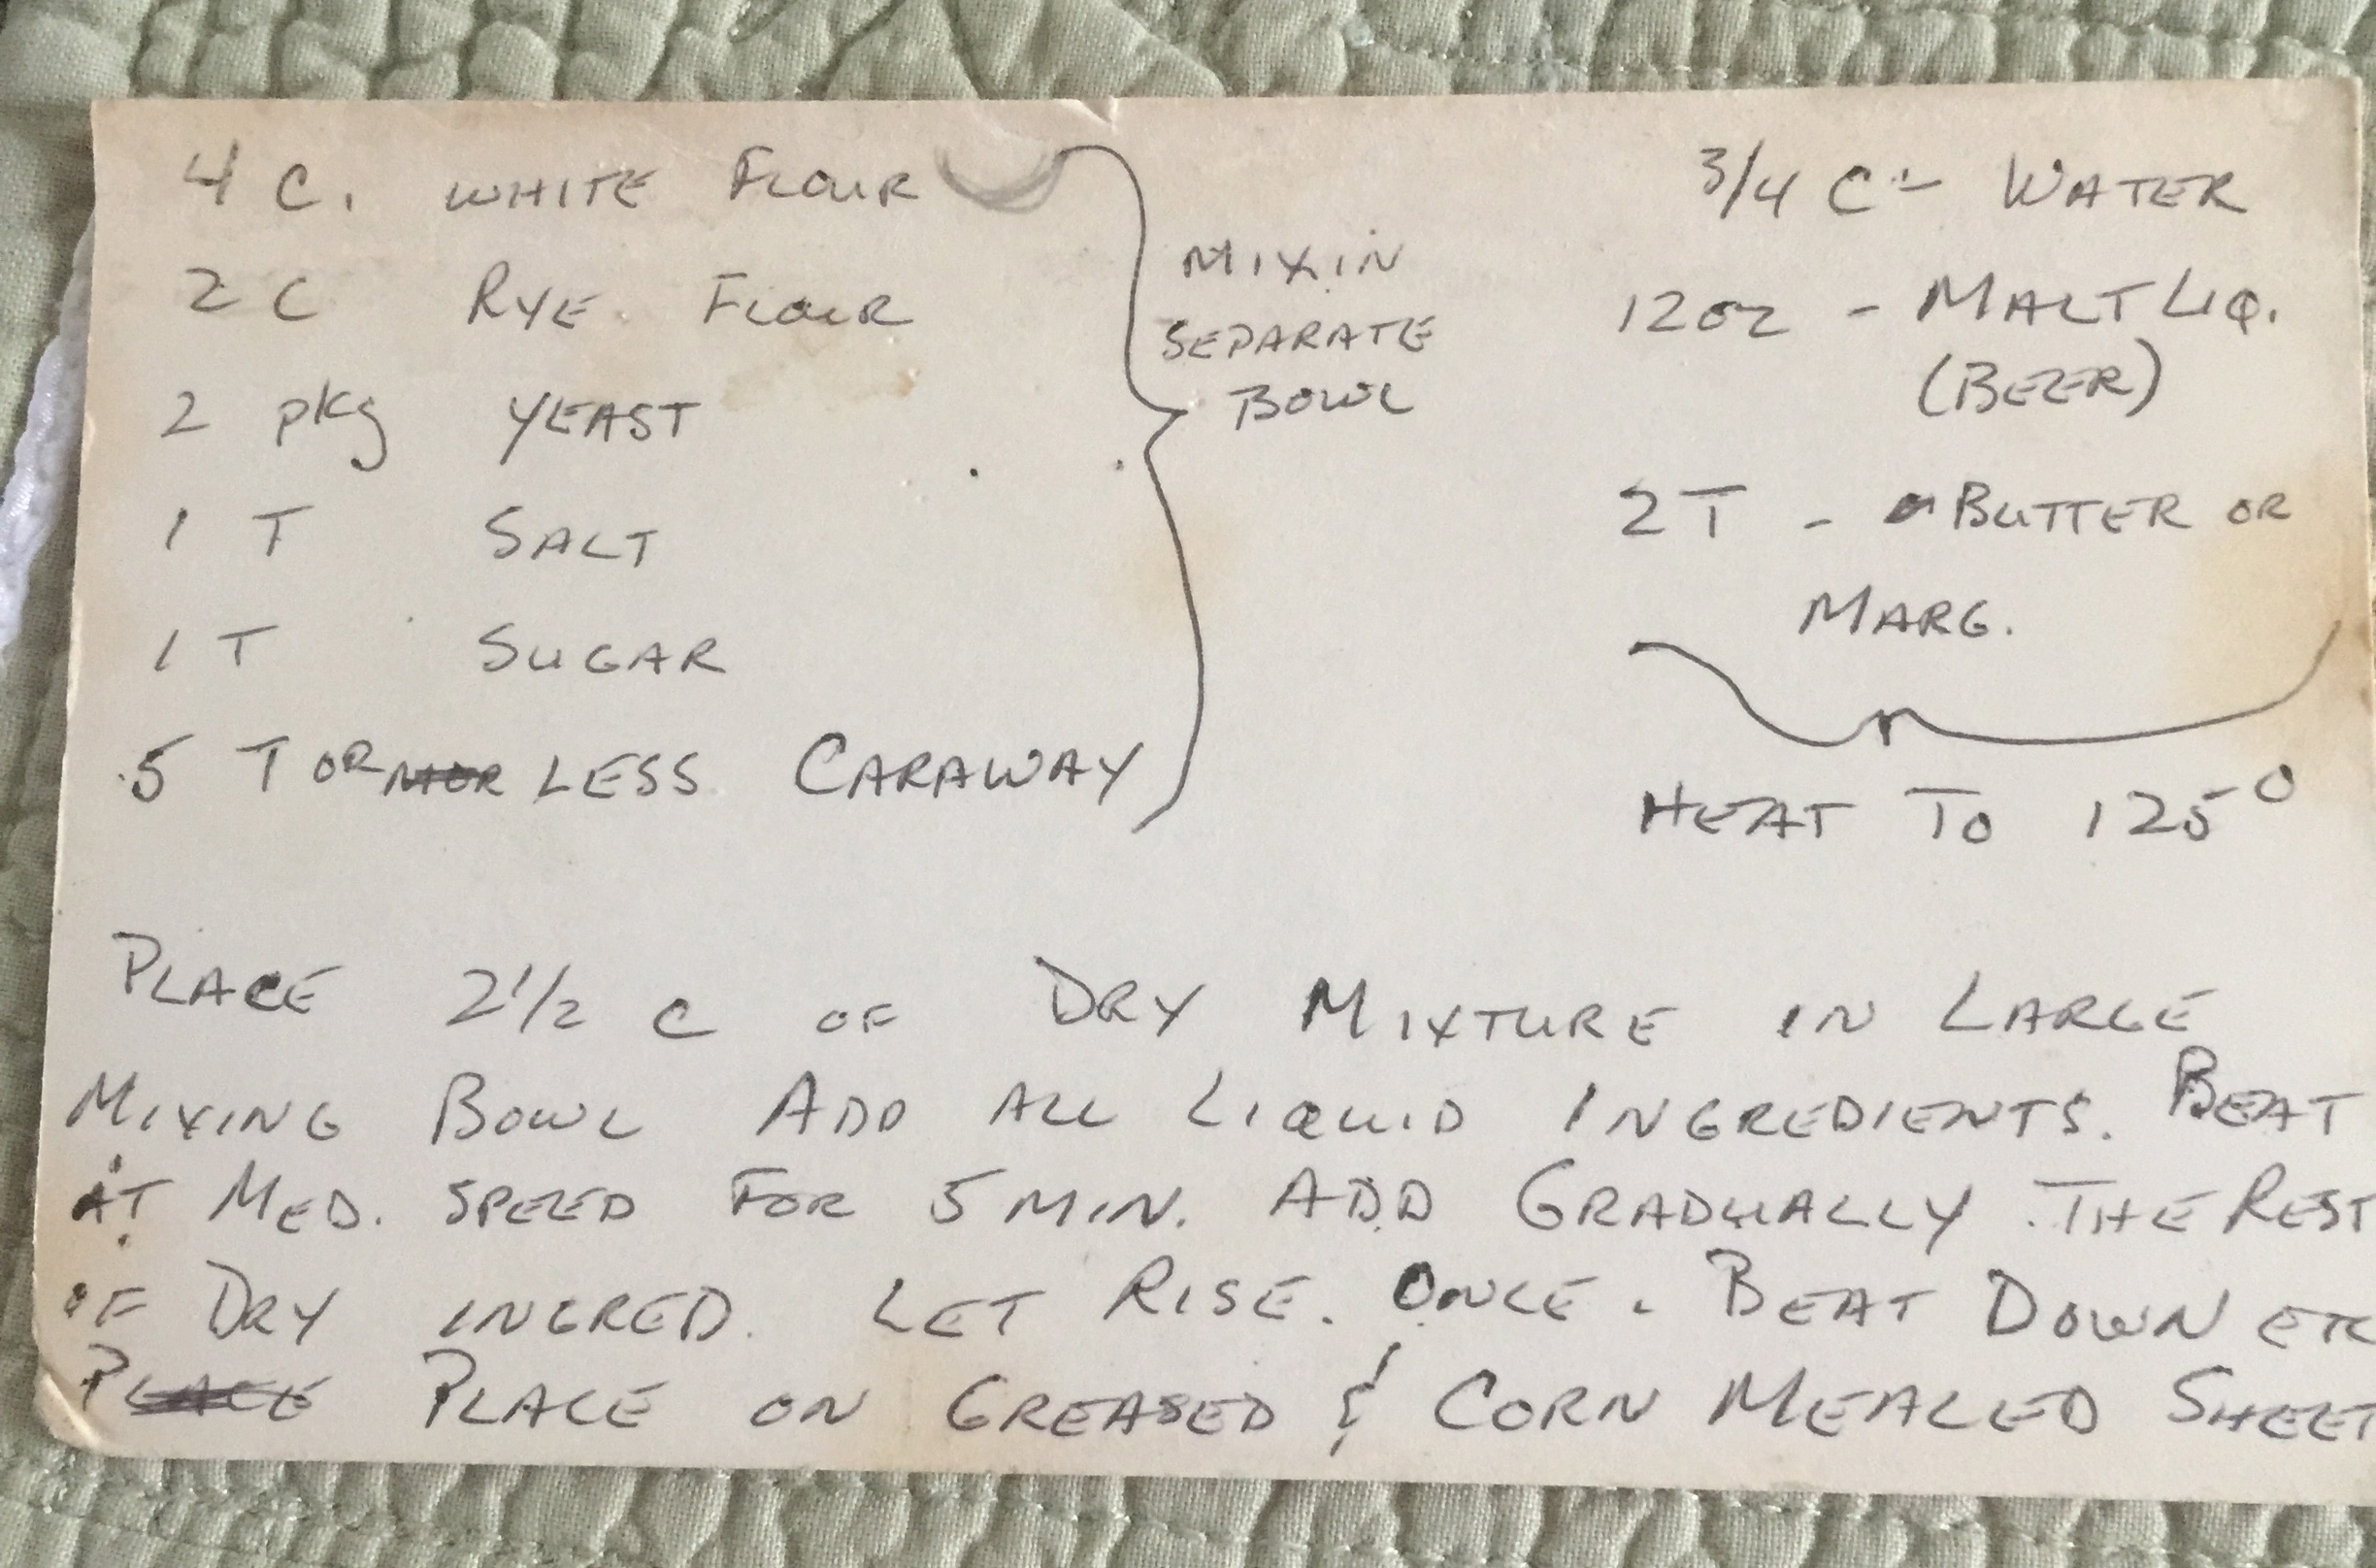 4 C. WHITE FLOUR
2 C RYE FLOUR
2 pkg YEAST
1 T SALT
1 T SUGAR
.5 T OR LESS CARAWAY
MIX IN
SEPARATE
BOWL
3/4 C - WATER
12oz - MALT LIQ.
(BEER)
2 T - BUTTER OR
MARG.
HEAT TO 125°
PLACE 2 1/2 C OF DRY MIXTURE IN LARGE
MIXING BOWL ADD ALL LIQUID INGREDIENTS. BEAT
AT MED. SPEED FOR 5 MIN. ADD GRADUALLY THE REST
OF DRY INGRED. LET RISE. ONCE. BEAT DOWN ETC
PLACE PLACE ON GREASED & CORN MEALED SHEET